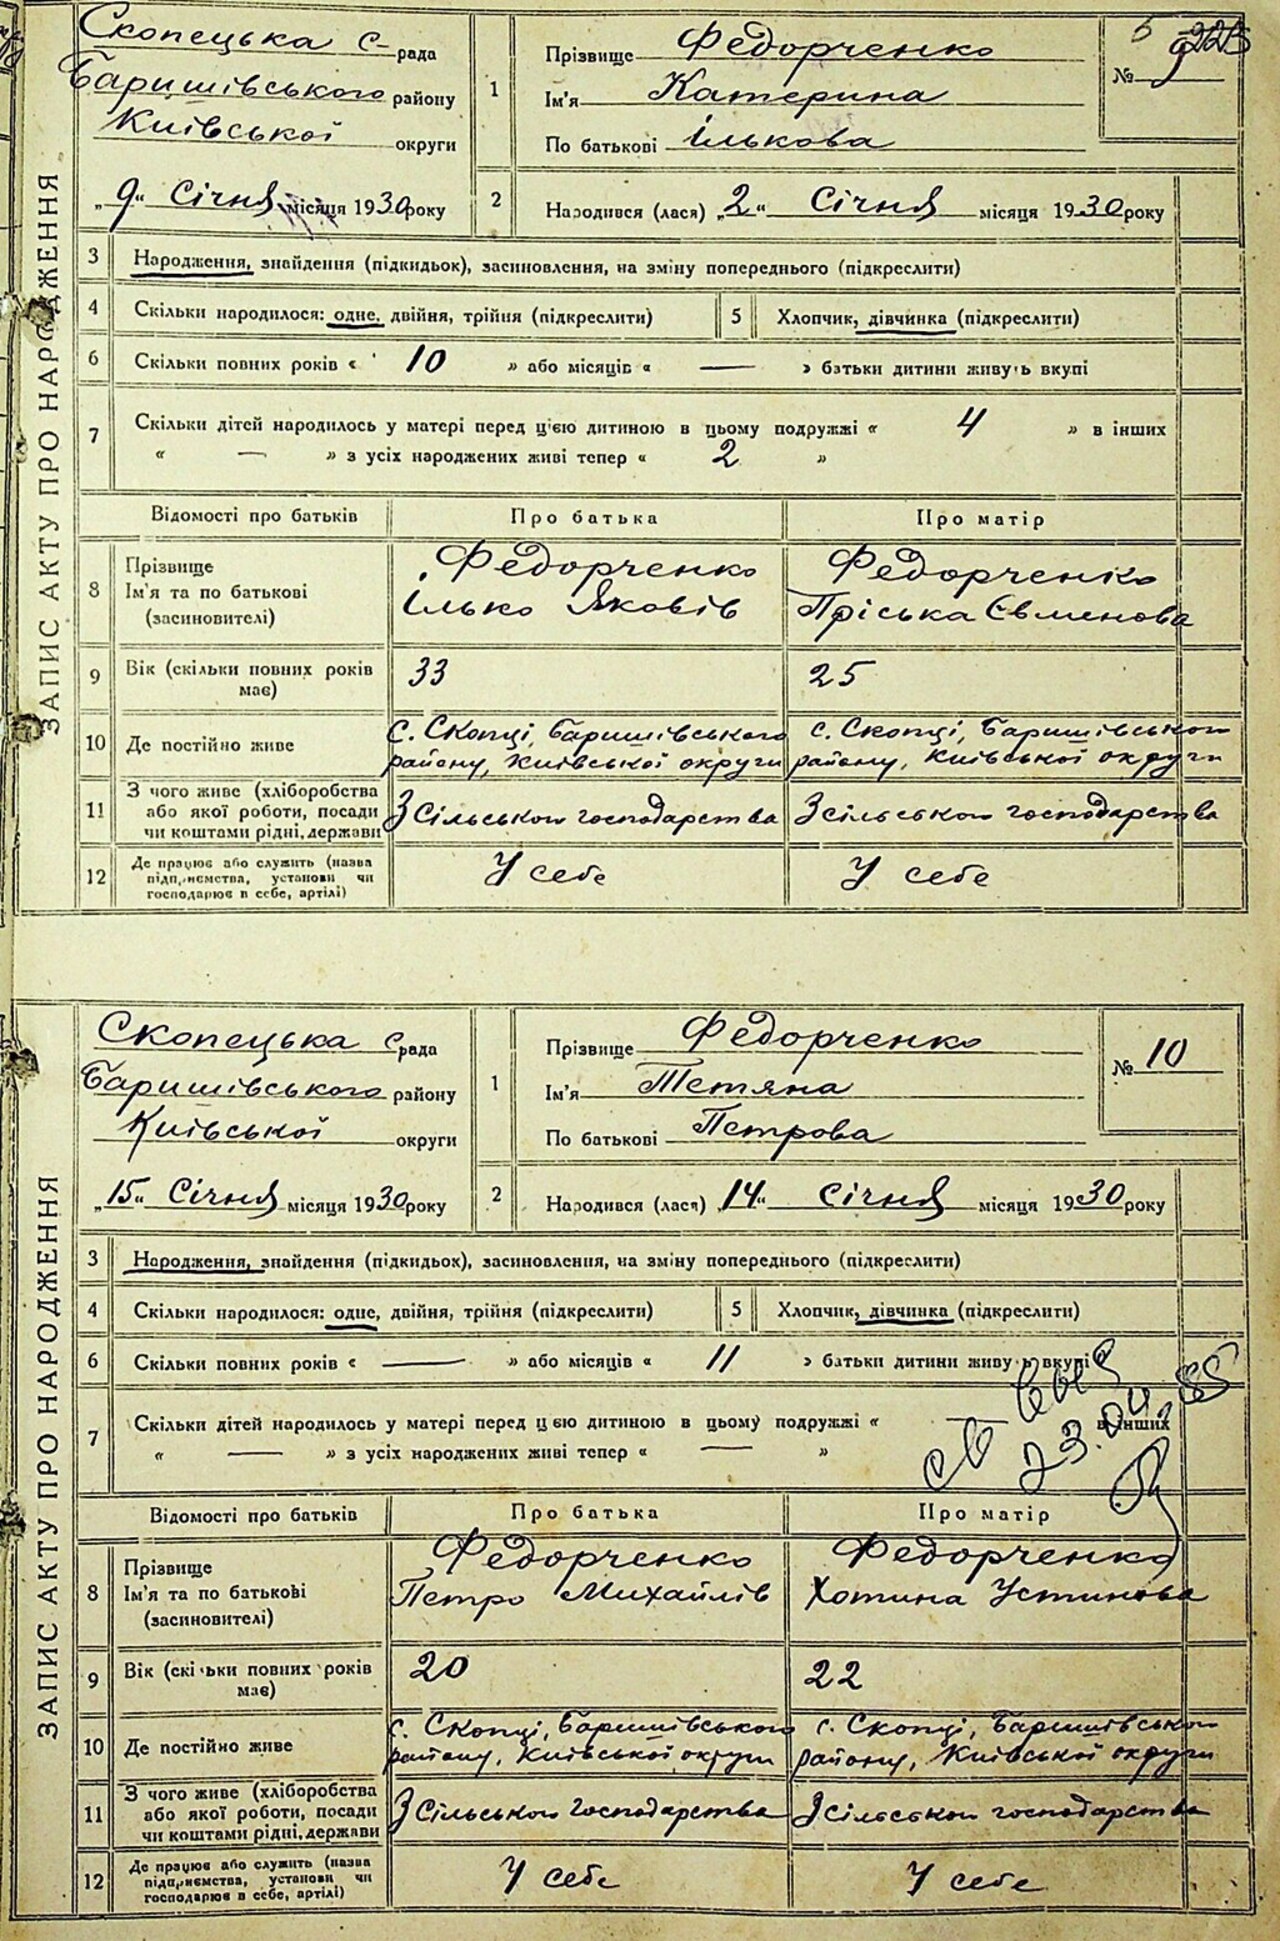 ЗАПИС АКТУ ПРО НАРОДЖЕННЯ
Скопецька с-рада
Баришівського району
Київської округи
„9“ Січня місяця 1930 року
1
Прізвище Федорченко
Ім'я Катерина
По батькові Ількова
№ 9
2
Народився (лася) „2“ Січня місяця 1930 року
3 Народження, знайдення (підкидьок), засиновлення, на зміну попереднього (підкреслити)
4 Скільки народилося: одне, двійня, трійня (підкреслити) 5 Хлопчик, дівчинка (підкреслити)
6 Скільки повних років « 10 » або місяців « — » батьки дитини живуть вкупі
7 Скільки дітей народилось у матері перед цією дитиною в цьому подружжі « 4 » в інших
« — » з усіх народжених живі тепер « 2 »
Відомості про батьків Про батька Про матір
8 Прізвище Ім'я та по батькові (засиновителі)
Федорченко Ілько Яковів
Федорченко Пріська Євменова
9 Вік (скільки повних років має) 33 25
10 Де постійно живе
с. Скопці, Баришівського району, Київської округи
с. Скопці, Баришівського району, Київської округи
11 З чого живе (хліборобства або якої роботи, посади чи коштами рідні, держави
З сільського господарства З сільського господарства
12 Де працює або служить (назва підприємства, установи чи господарює в себе, артілі)
У себе У себе
ЗАПИС АКТУ ПРО НАРОДЖЕННЯ
Скопецька с рада
Баришівського району
Київської округи
„15“ Січня місяця 1930 року
1
Прізвище Федорченко
Ім'я Тетяна
По батькові Петрова
№ 10
2
Народився (лася) „14“ січня місяця 1930 року
3 Народження, знайдення (підкидьок), засиновлення, на зміну попереднього (підкреслити)
4 Скільки народилося: одне, двійня, трійня (підкреслити) 5 Хлопчик, дівчинка (підкреслити)
6 Скільки повних років « — » або місяців « 11 » батьки дитини живуть вкупі
7 Скільки дітей народилось у матері перед цією дитиною в цьому подружжі « — в інших
« — » з усіх народжених живі тепер « — »
23.04.85
Відомості про батьків Про батька Про матір
8 Прізвище Ім'я та по батькові (засиновителі)
Федорченко Петро Михайлів
Федорченко Хотина Устинова
9 Вік (скільки повних років має) 20 22
10 Де постійно живе
с. Скопці, Баришівського району, Київської округи
с. Скопці, Баришівського району, Київської округи
11 З чого живе (хліборобства або якої роботи, посади чи коштами рідні, держави
З сільського господарства З сільського господарства
12 Де працює або служить (назва підприємства, установи чи господарює в себе, артілі)
У себе У себе